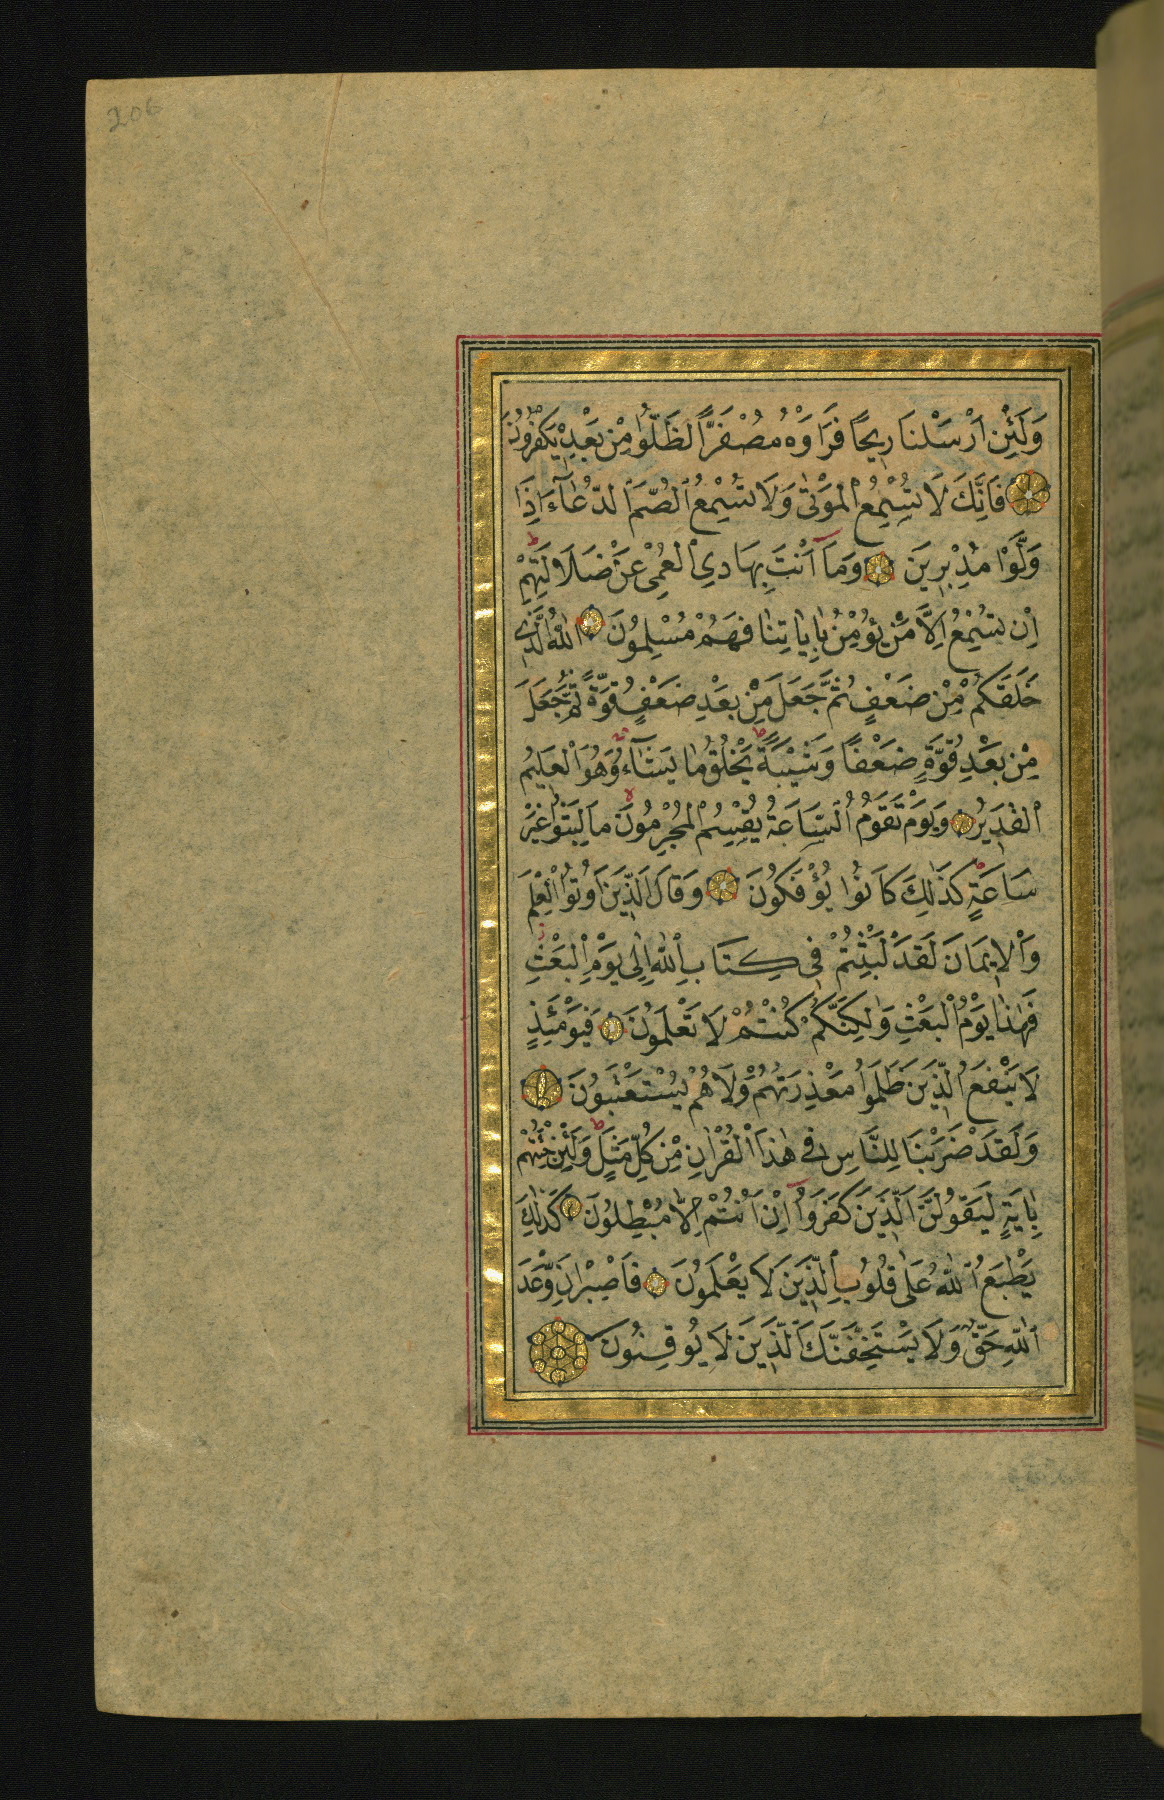 206
وَلَئِنْ اَرْسَلْنَا رِيحًا فَرَاَوْهُ مُصْفَرًّا لَظَلُّوا مِنْ بَعْدِهِ يَكْفُرُونَ
فَاِنَّكَ لَا تُسْمِعُ الْمَوْتٰى وَلَا تُسْمِعُ الصُّمَّ الدُّعَآءَ اِذَا
وَلَّوْا مُدْبِرِينَ وَمَآ اَنْتَ بِهَادِي الْعُمْيِ عَنْ ضَلَالَتِهِمْ
اِنْ تُسْمِعُ اِلَّا مَنْ يُؤْمِنُ بِاٰيَاتِنَا فَهُمْ مُسْلِمُونَ اَللّٰهُ الَّذِي
خَلَقَكُمْ مِنْ ضَعْفٍ ثُمَّ جَعَلَ مِنْ بَعْدِ ضَعْفٍ قُوَّةً ثُمَّ جَعَلَ
مِنْ بَعْدِ قُوَّةٍ ضَعْفًا وَشَيْبَةً يَخْلُقُ مَا يَشَآءُ وَهُوَ الْعَلِيمُ
الْقَدِيرُ وَيَوْمَ تَقُومُ السَّاعَةُ يُقْسِمُ الْمُجْرِمُونَ مَا لَبِثُوا غَيْرَ
سَاعَةٍ كَذٰلِكَ كَانُوا يُؤْفَكُونَ وَقَالَ الَّذِينَ اُوتُوا الْعِلْمَ
وَالْاِيمَانَ لَقَدْ لَبِثْتُمْ فِي كِتَابِ اللّٰهِ اِلٰى يَوْمِ الْبَعْثِ
فَهٰذَا يَوْمُ الْبَعْثِ وَلٰكِنَّكُمْ كُنْتُمْ لَا تَعْلَمُونَ فَيَوْمَئِذٍ
لَا يَنْفَعُ الَّذِينَ ظَلَمُوا مَعْذِرَتُهُمْ وَلَا هُمْ يُسْتَعْتَبُونَ
وَلَقَدْ ضَرَبْنَا لِلنَّاسِ فِي هٰذَا الْقُرْاٰنِ مِنْ كُلِّ مَثَلٍ وَلَئِنْ جِئْتَهُمْ
بِاٰيَةٍ لَيَقُولَنَّ الَّذِينَ كَفَرُوا اِنْ اَنْتُمْ اِلَّا مُبْطِلُونَ كَذٰلِكَ
يَطْبَعُ اللّٰهُ عَلٰى قُلُوبِ الَّذِينَ لَا يَعْلَمُونَ فَاصْبِرْ اِنَّ وَعْدَ
اللّٰهِ حَقٌّ وَلَا يَسْتَخِفَّنَّكَ الَّذِينَ لَا يُوقِنُونَ